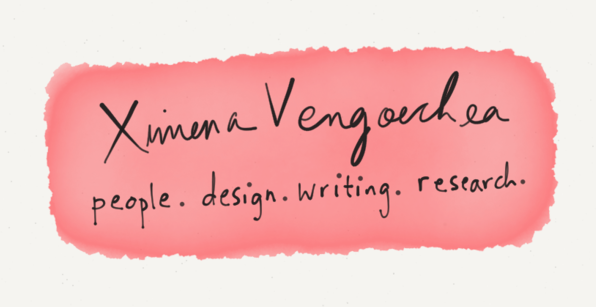 Ximena Vengoechea
people. design. writing. research.